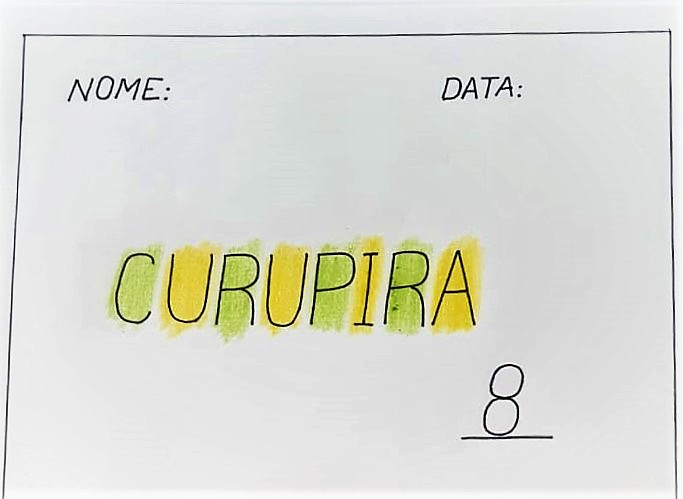 NOME: DATA:
CURUPIRA
8